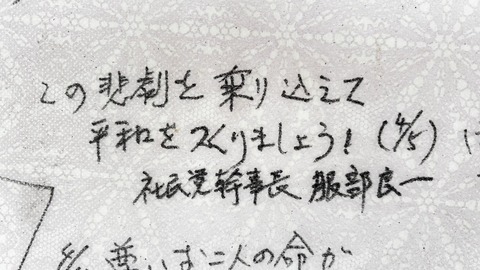 この悲劇を乗り込えて
平和をつくりましょう! (4/5)
社民党幹事長 服部良一
尊い お二人の命が